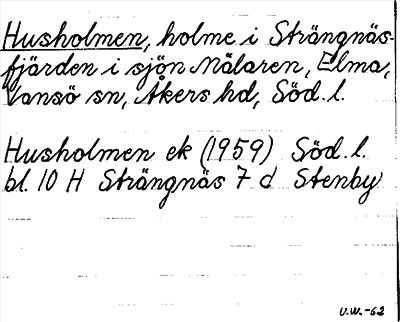 Husholmen, holme i Strängnäs-
fjärden i sjön Mälaren, Elma,
Vansö sn, Åkers hd, Söd. l.
Husholmen ek (1959) Söd. l.
bl. 10 H Strängnäs 7 d Stenby
U.W.-62